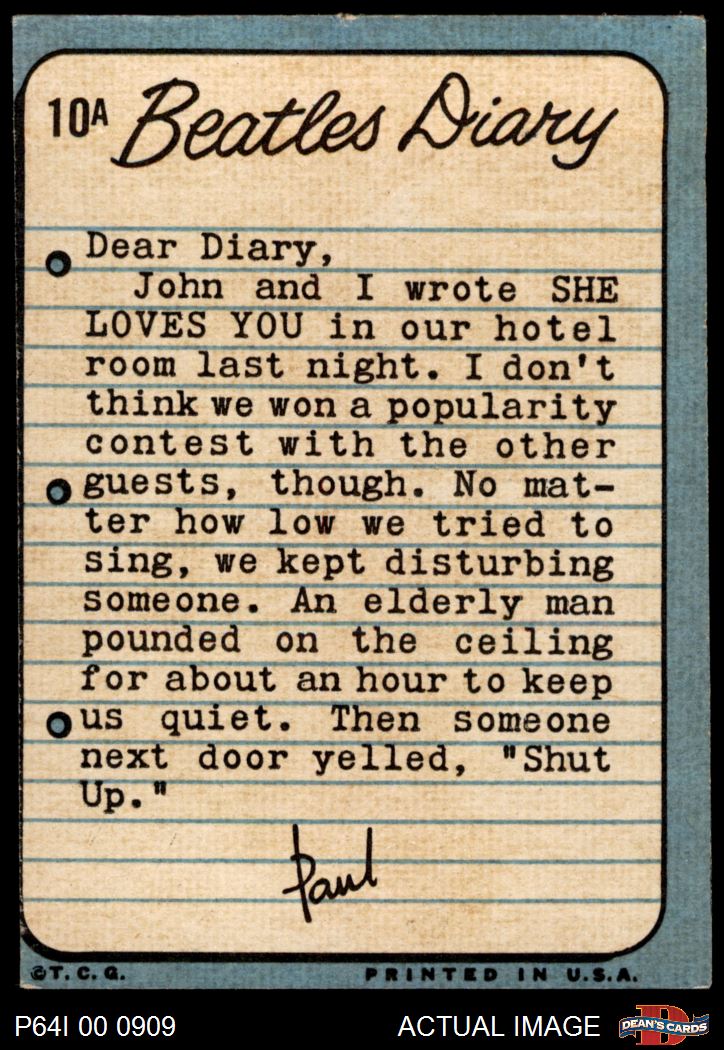 10A Beatles Diary
Dear Diary,
John and I wrote SHE
LOVES YOU in our hotel
room last night. I don't
think we won a popularity
contest with the other
guests, though. No mat-
ter how low we tried to
sing, we kept disturbing
someone. An elderly man
pounded on the ceiling
for about an hour to keep
us quiet. Then someone
next door yelled, "Shut
Up."
Paul
©T.C.G. PRINTED IN U.S.A.
P64I 00 0909 ACTUAL IMAGE D DEAN'S CARDS